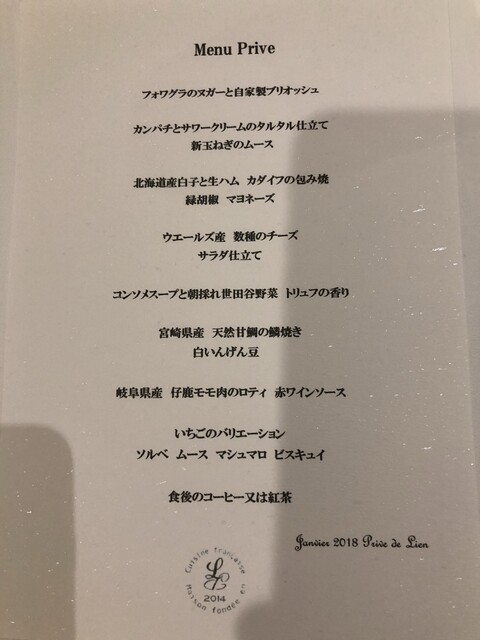 Menu Prive
フォワグラのヌガーと自家製ブリオッシュ
カンパチとサワークリームのタルタル仕立て
新玉ねぎのムース
北海道産白子と生ハム カダイフの包み焼
緑胡椒 マヨネーズ
ウエールズ産 数種のチーズ
サラダ仕立て
コンソメスープと朝採れ世田谷野菜 トリュフの香り
宮崎県産 天然甘鯛の鱗焼き
白いんげん豆
岐阜県産 仔鹿モモ肉のロティ 赤ワインソース
いちごのバリエーション
ソルベ ムース マシュマロ ビスキュイ
食後のコーヒー又は紅茶
Janvier 2018 Prive de Lien
Cuisine française
L
2014
Maison fondée en